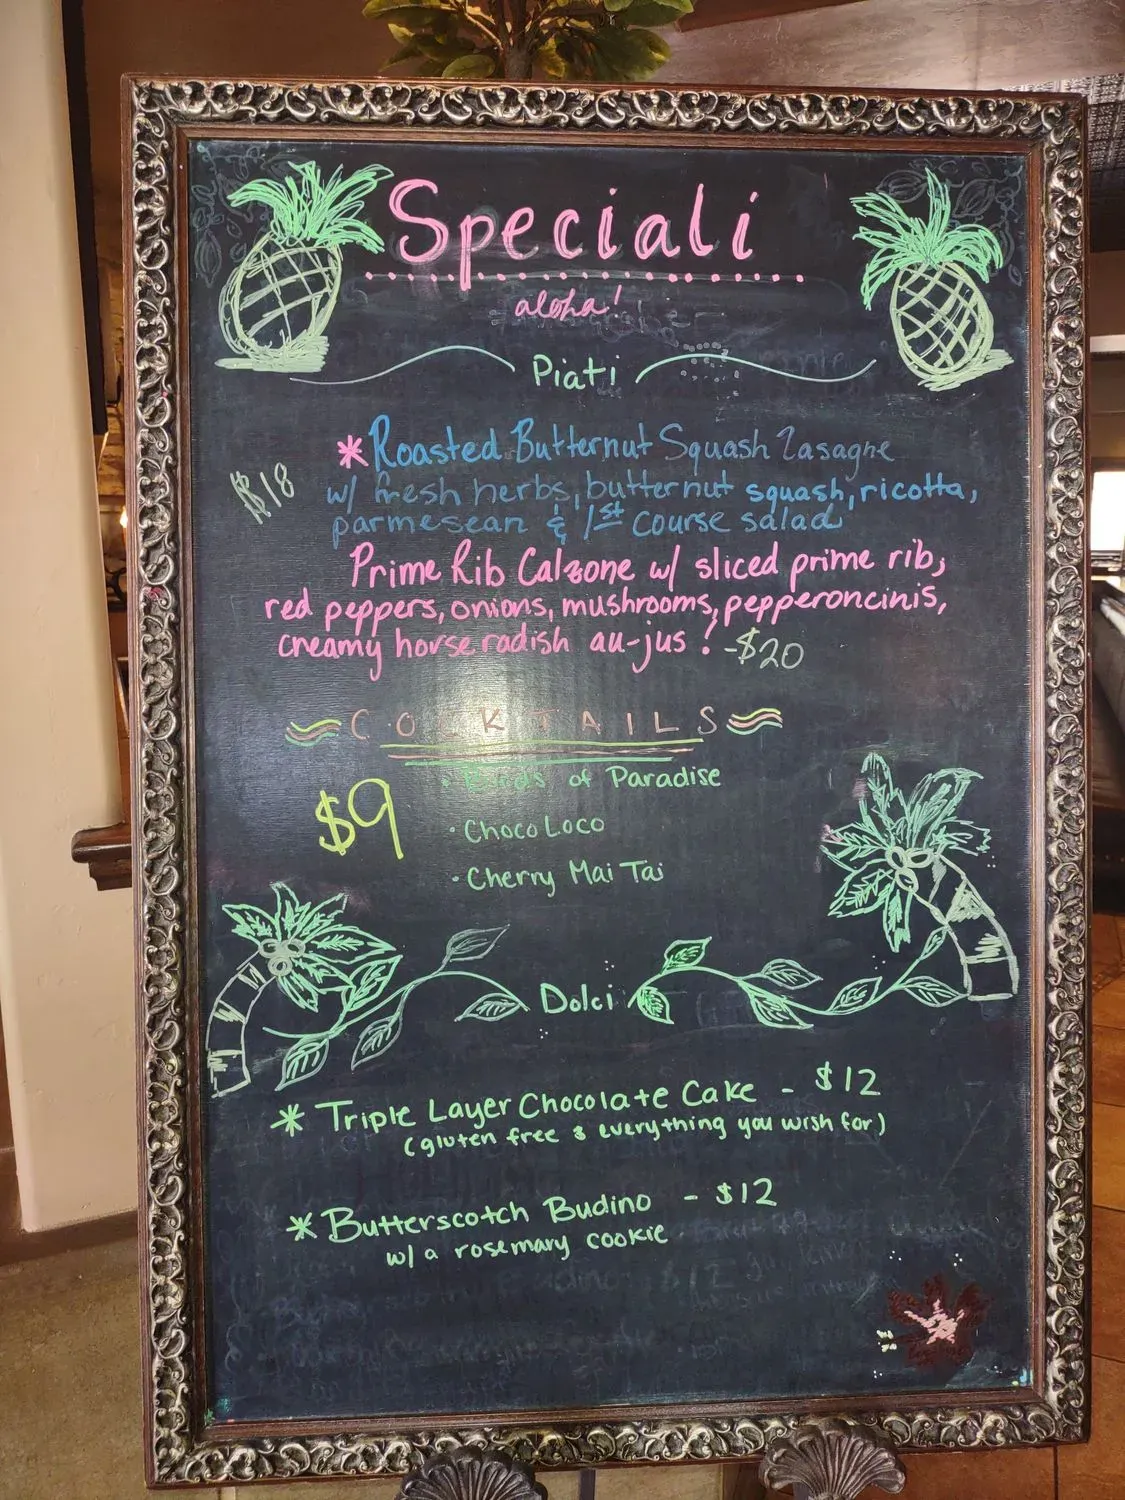 Speciali
aloha!
Piati
*Roasted Butternut Squash Lasagne
$18
w/ fresh herbs, butternut squash, ricotta,
parmesean & 1st course salad
Prime Rib Calzone w/ sliced prime rib,
red peppers, onions, mushrooms, pepperoncinis,
creamy horseradish au-jus! -$20
COCKTAILS
$9
• Birds of Paradise
• Choco Loco
• Cherry Mai Tai
Dolci
* Triple Layer Chocolate Cake - $12
(gluten free & everything you wish for)
* Butterscotch Budino - $12
w/ a rosemary cookie